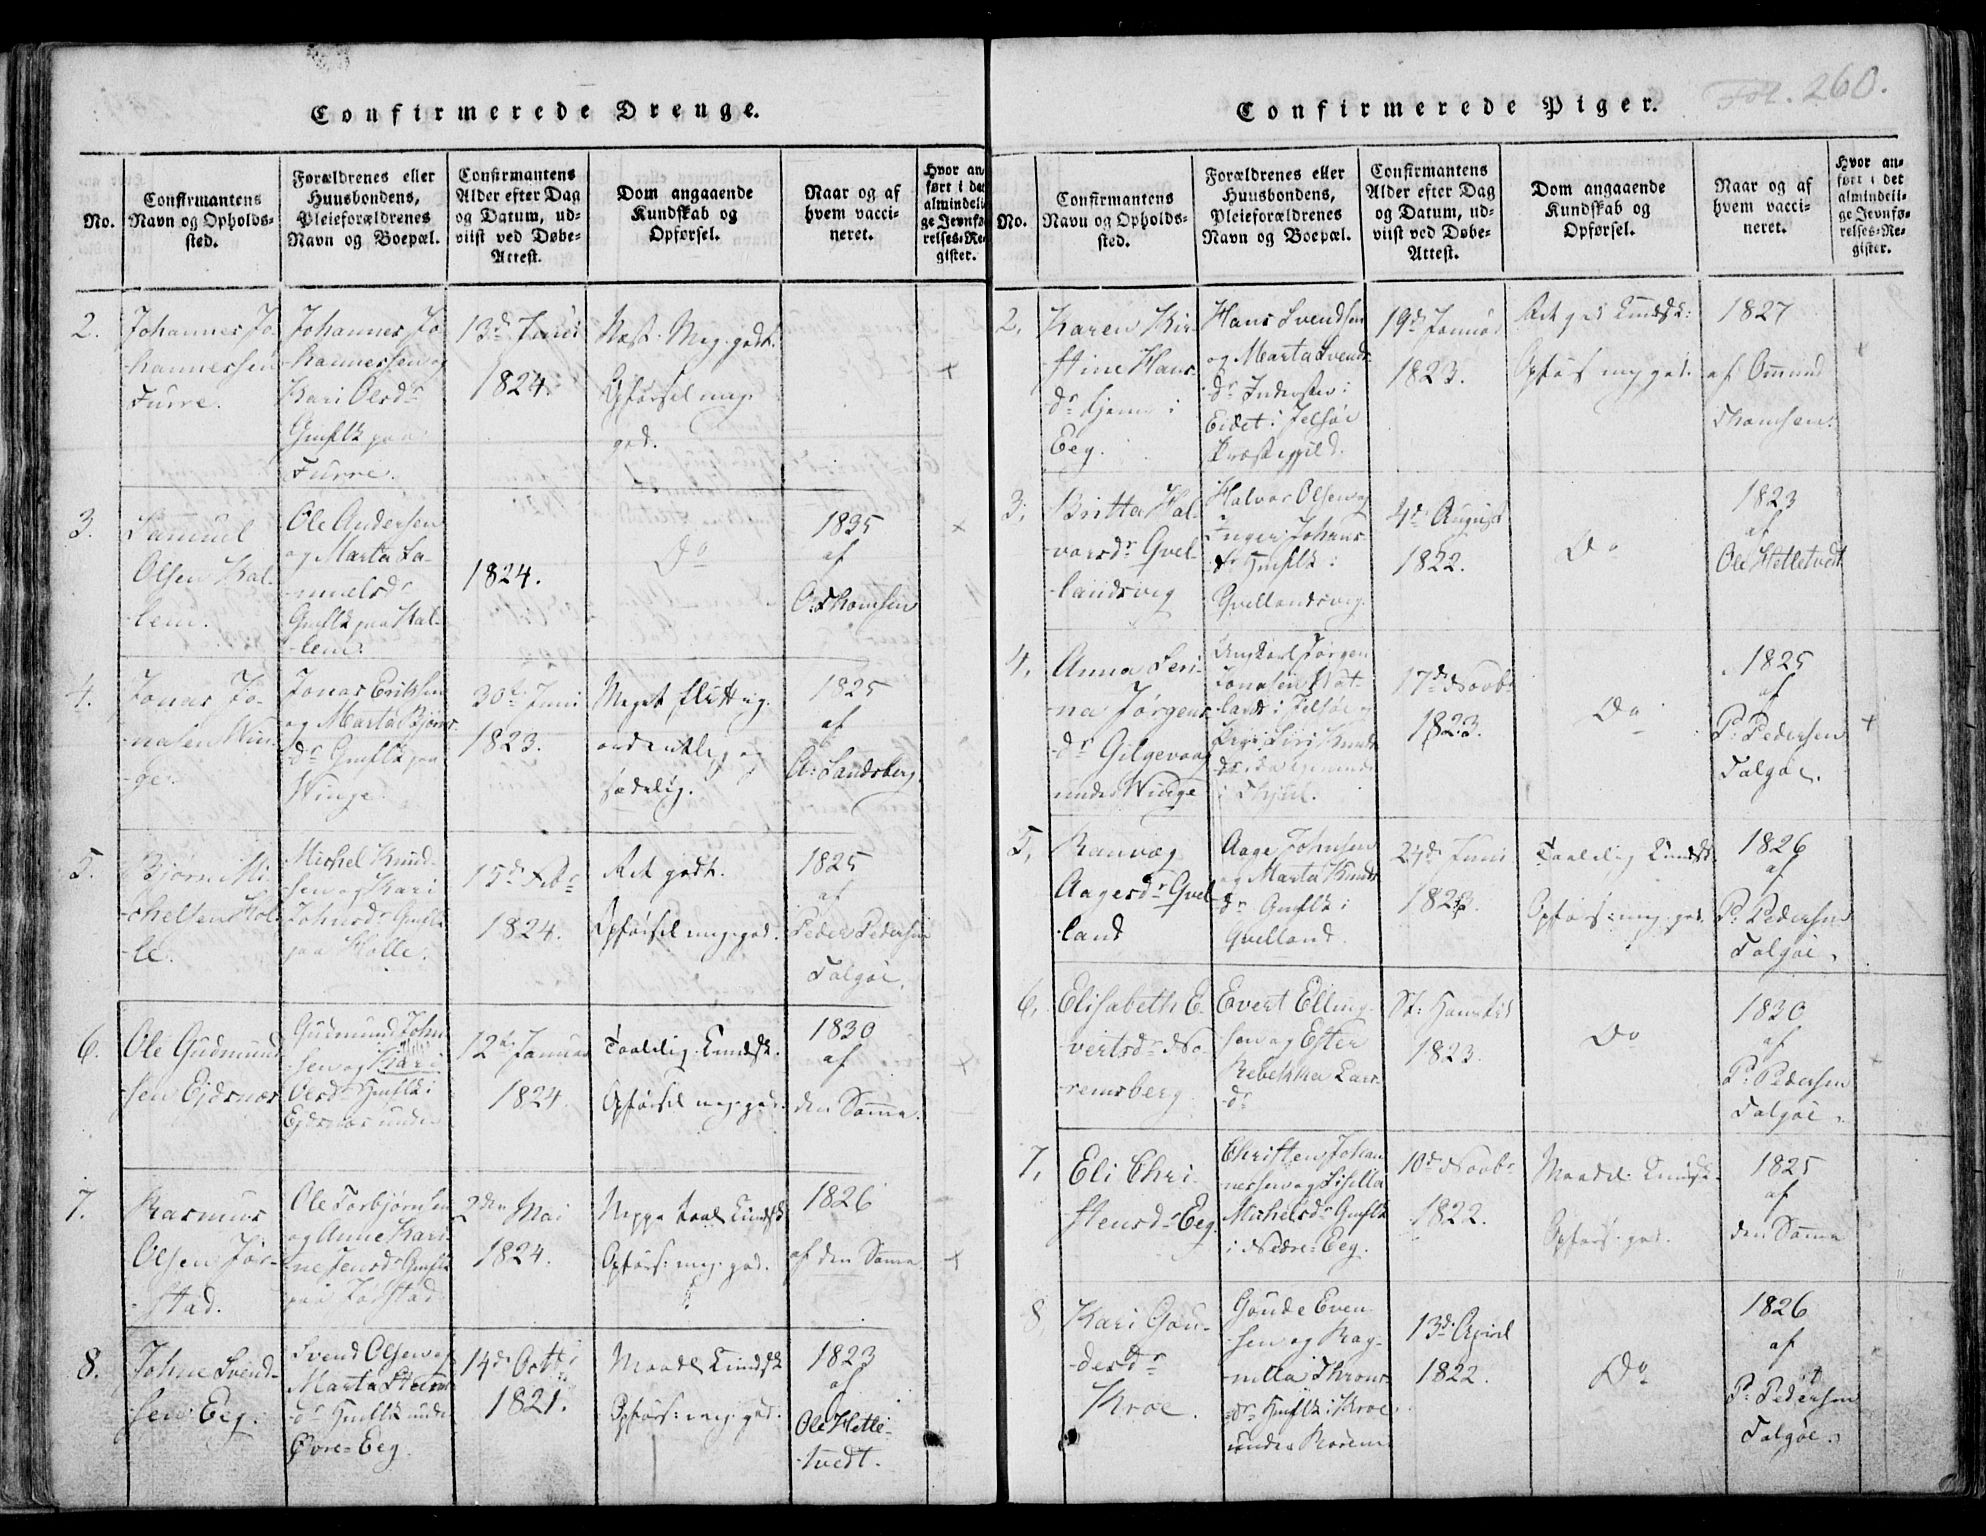 Confirmerede Drenge.
No.
Confirmantens
Navn og Opholds-
sted.
Forældrenes eller
Huusbondens,
Pleieforældrenes
Navn og Boepæl.
Confirmantens
Alder efter Dag
og Datum, ud-
viist ved Døbe-
Attest.
Dom angaaende
Kundskab og
Opførsel.
Naar og af
hvem vacci-
neret.
Hvor an-
ført i det
almindeli-
ge Jevnfø-
relses-Re-
gister.
2.
Johannes Jo-
hannessen
Furre.
Johannes Jo-
hannessen og
Kari Olsdr
Gmflk paa
Furre.
13de Juni
1824.
Næst. Meg. godt.
Opførsel meg.
god.
+
3.
Samuel
Olsen Kal-
lem.
Ole Andersen
og Marta Sa-
muelsdr
Gmflk paa Kal-
lem.
1824.
Do
1835
af
O. Thomsen
×
4.
Jonas Jo-
nasen Win-
ge.
Jonas Eriksen
og Marta Bjørns-
dr Gmflk paa
Winge.
30te Juni
1823.
Meget flittig,
ordentlig og
sædelig.
1825
af
A. Sandsberg
5.
Bjørn Mi-
chelsen Hol-
le.
Michel Knud-
sen og Kari
Johnsdr Gmflk
paa Holle.
15de Febr
1824.
Ret godt.
Opførsel meg. god.
1825
af
Peder Pedersen
Talgøe.
6.
Ole Gudmund-
sen Ejdsnæs
Gudmund John-
sen og Kari
Olesdr Hmflk i
Ejdsnæs under
12te Januar
1824.
Taalelig Kundsk.
Opførsel meg. god.
1830
af
den Samme.
+
7.
Rasmus
Olsen Jør-
stad.
Ole Torbjørnsen
og Anne Kari-
ne Jensdr Gmflk
paa Jørstad
2den Mai
1824.
Neppe taal. Kundsk.
Opførs: meg. god.
1826
af den Samme.
+
8.
Johne Svend-
sen Eeg.
Svend Olsen og
Marta Steens-
dr Hmflk under
Øvre-Eeg.
14de Octbr
1821.
Maadel. Kundsk
Opførs: meg. god.
1823
af
Ole Hetle-
tvedt.
Confirmerede Piger.
Fol. 260.
No.
Confirmantens
Navn og Opholds-
sted.
Forældrenes eller
Huusbondens,
Pleieforældrenes
Navn og Boepæl.
Confirmantens
Alder efter Dag
og Datum, ud-
viist ved Døbe-
Attest.
Dom angaaende
Kundskab og
Opførsel.
Naar og af
hvem vacci-
neret.
Hvor an-
ført i det
almindeli-
ge Jevnfø-
relses-Re-
gister.
2.
Karen Kir-
stine Hans-
dr tjener i
Eeg.
Hans Svendsen
og Marta Svends-
dr Inderster i
Eidet i Jelsøe
Præstegjeld.
19de Januar
1823.
Ret god Kundsk:
Opførs meg. god.
1827
af Omund
Thomsen.
+
3.
Britta Hal-
vorsdr Qvel-
landsvig
Halvor Olsen og
Inger Johans-
dr Hmflk i
Qvellandsvig.
4de August
1822.
Do
1823
af
Ole Hetletvedt
4.
Anna Seri-
na Jørgens-
dr Gilgevaag
under Winge
Ungkarl Jørgen
Jonasen
i Jelsøe og
Pige Siri Knuds-
dr
17de Novbr
1823.
Do
1825
af
P. Pedersen
Talgøe.
+
5.
Ranvæg
Aagesdr Qvel-
land
Aage Johnsen
og Marta Knuds-
dr Gmflk i
Qvelland.
24de Juni
1823.
Taalelig Kundsk.
Opførs: meg. god.
1826
af
P. Pedersen
Talgøe.
6.
Elisabeth E-
vertsdr No-
remsberg
Evert Elling-
sen og Ester
Rebekka Lars-
dr
St. Hanstid
1823.
Do
1830
af
P. Pedersen
Talgøe.
+
7.
Eli Chri-
stensdr Eeg.
Christen Johan-
nessen og Sisella
Michelsdr Gmflk
i Nedre-Eeg.
10de Novbr
1822.
Maadel: Kundsk.
Opførs: god.
1825
af
den Samme
8.
Kari Gou-
desdr
Kroe.
Goude Even-
sen og Rag-
nilla Throns-
dr Hmflk i Kroe
under Norem.
13de April
1822.
Do
1826
af
P. Pedersen
Talgøe.